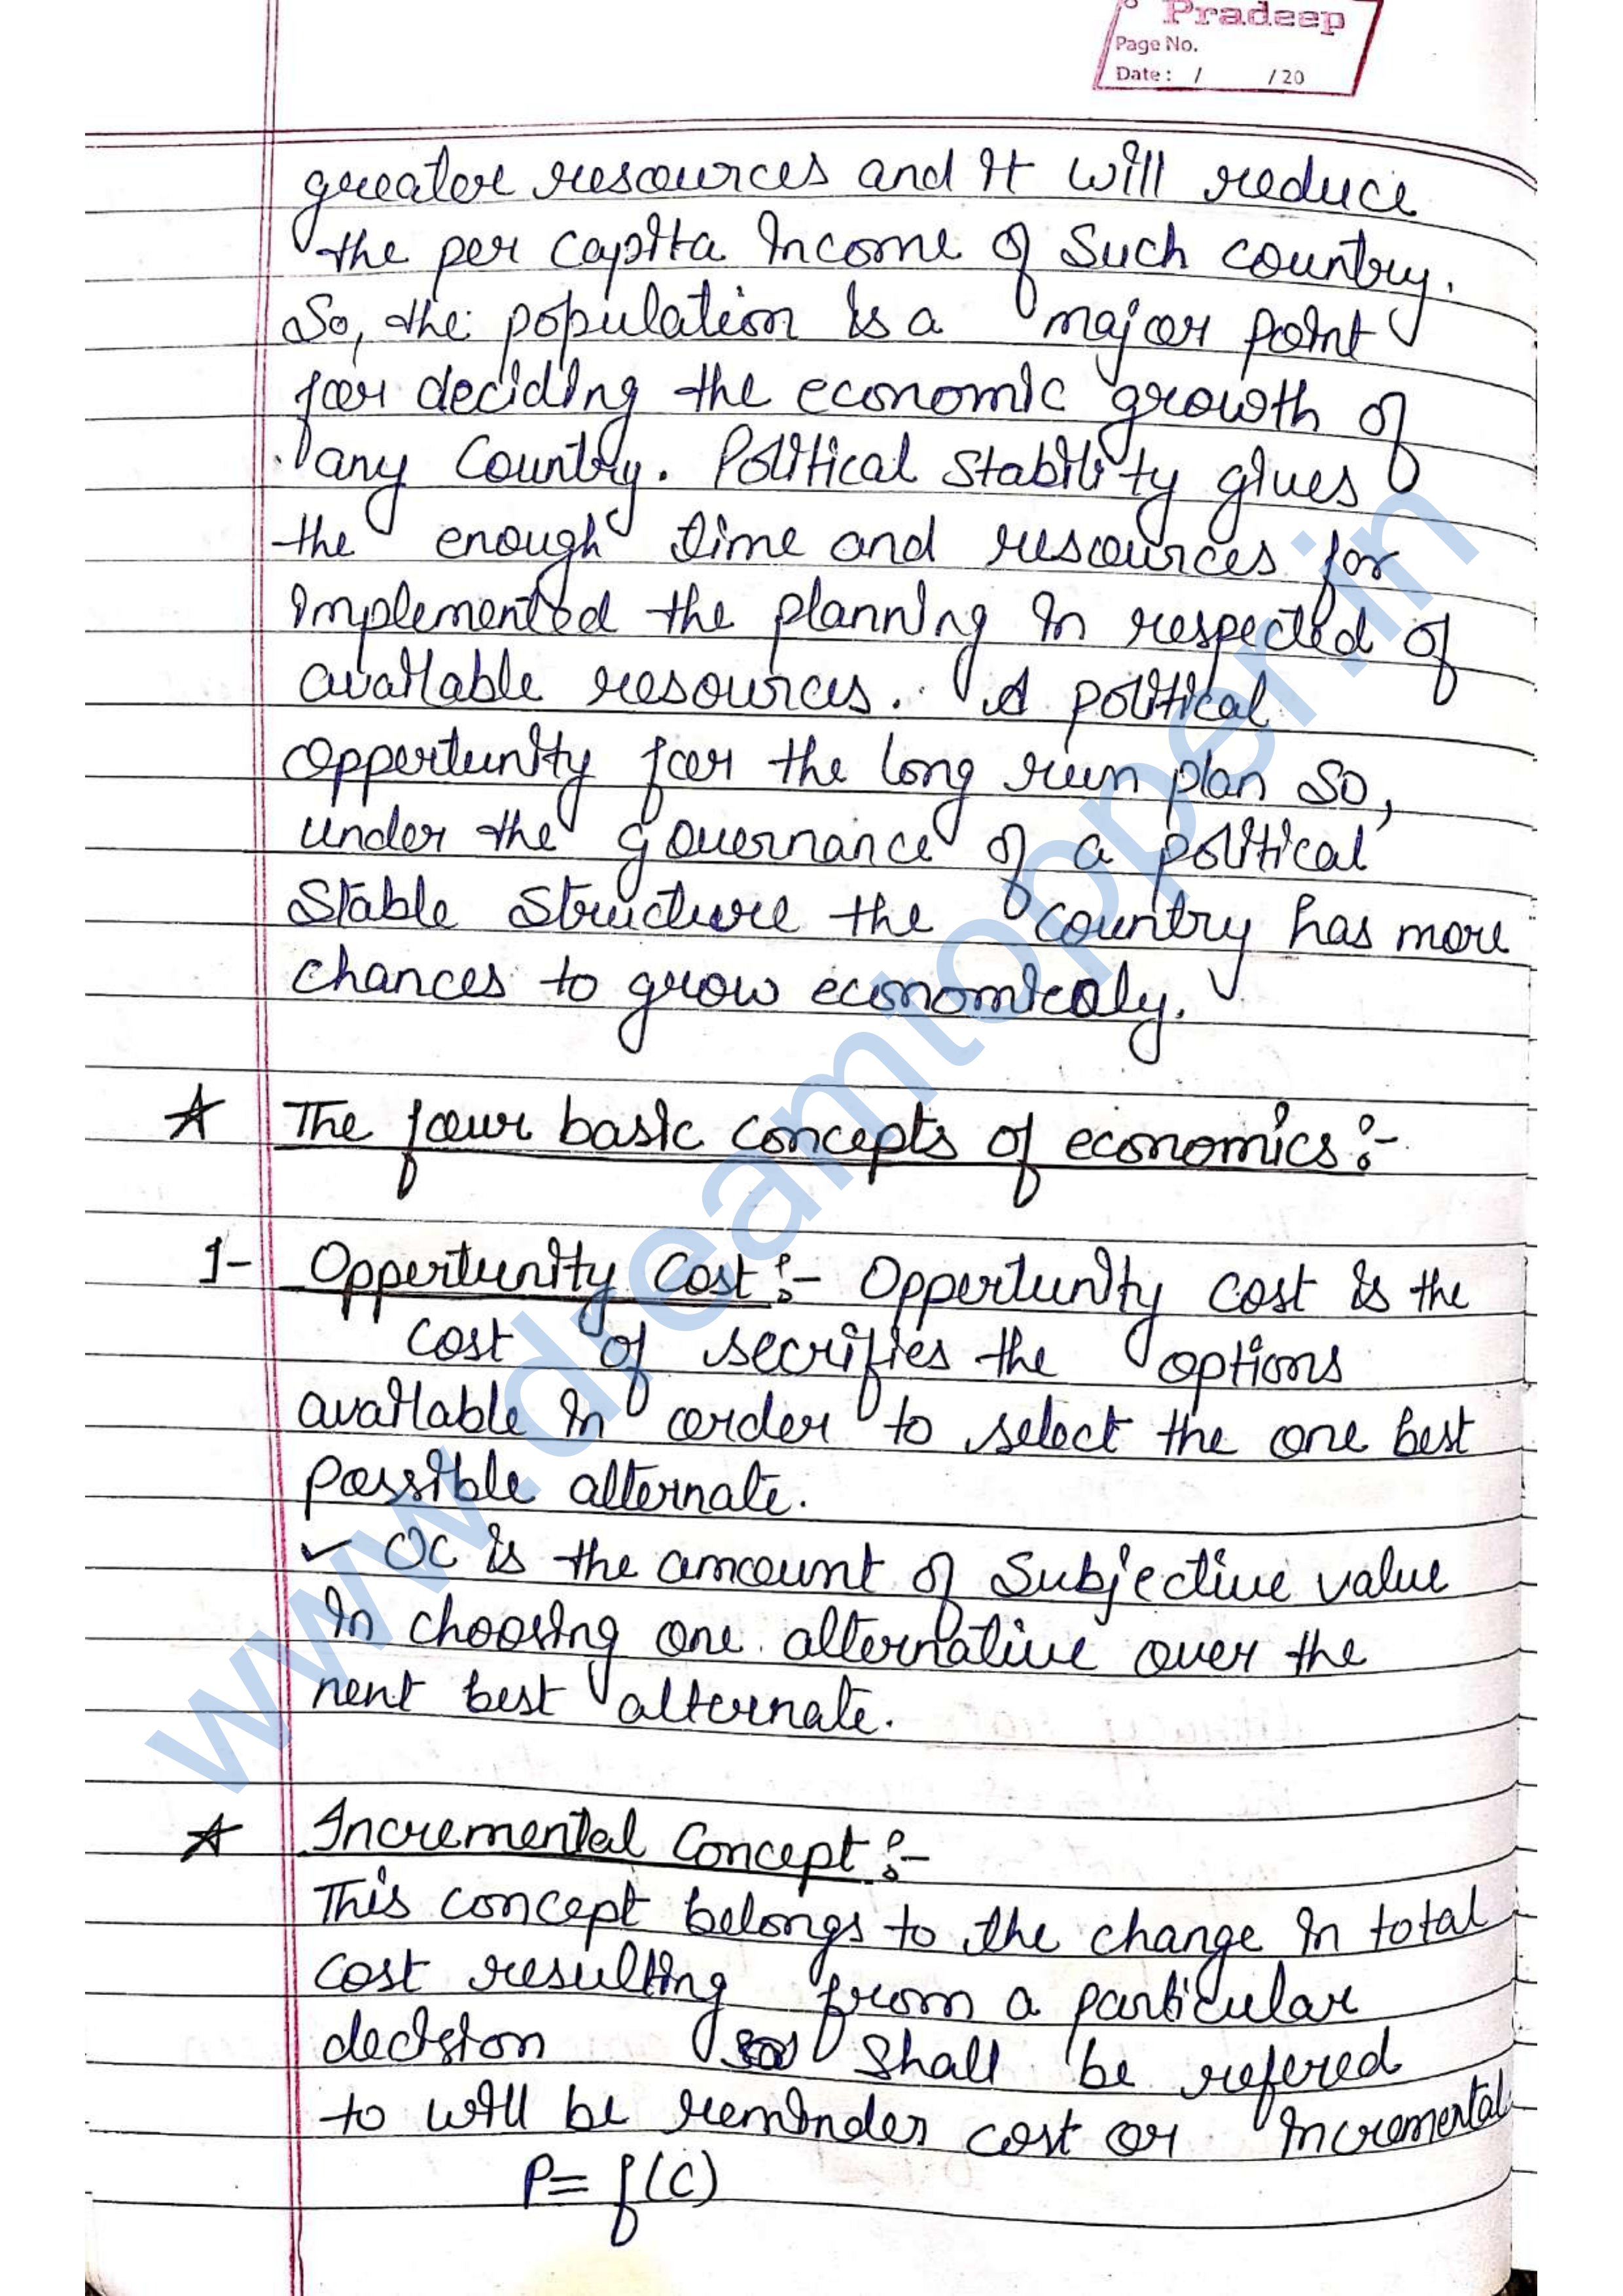 Pradeep
Page No.
Date: / /20
greater resources and it will reduce
the per capita income of such country.
So, the population is a major point
for deciding the economic growth of
any country. Political stability gives
the enough time and resources for
implemented the planning in respected of
available resources. A political
oppertunity for the long run plan so,
under the governance of a political
stable structure the country has more
chances to grow economicaly.
★ The four basic concepts of economics:-
1- Oppertunity Cost:- Oppertunity cost is the
cost of secrifies the options
available in order to select the one best
possible alternate.
✓ OC is the amount of subjective value
in choosing one alternative over the
nent best alternate.
★ Incremental Concept:-
This concept belongs to the change in total
cost resulting from a particular
decision shall be refered
to will be reminder cost or incremental
P= f(C)
www.dreamtopper.in